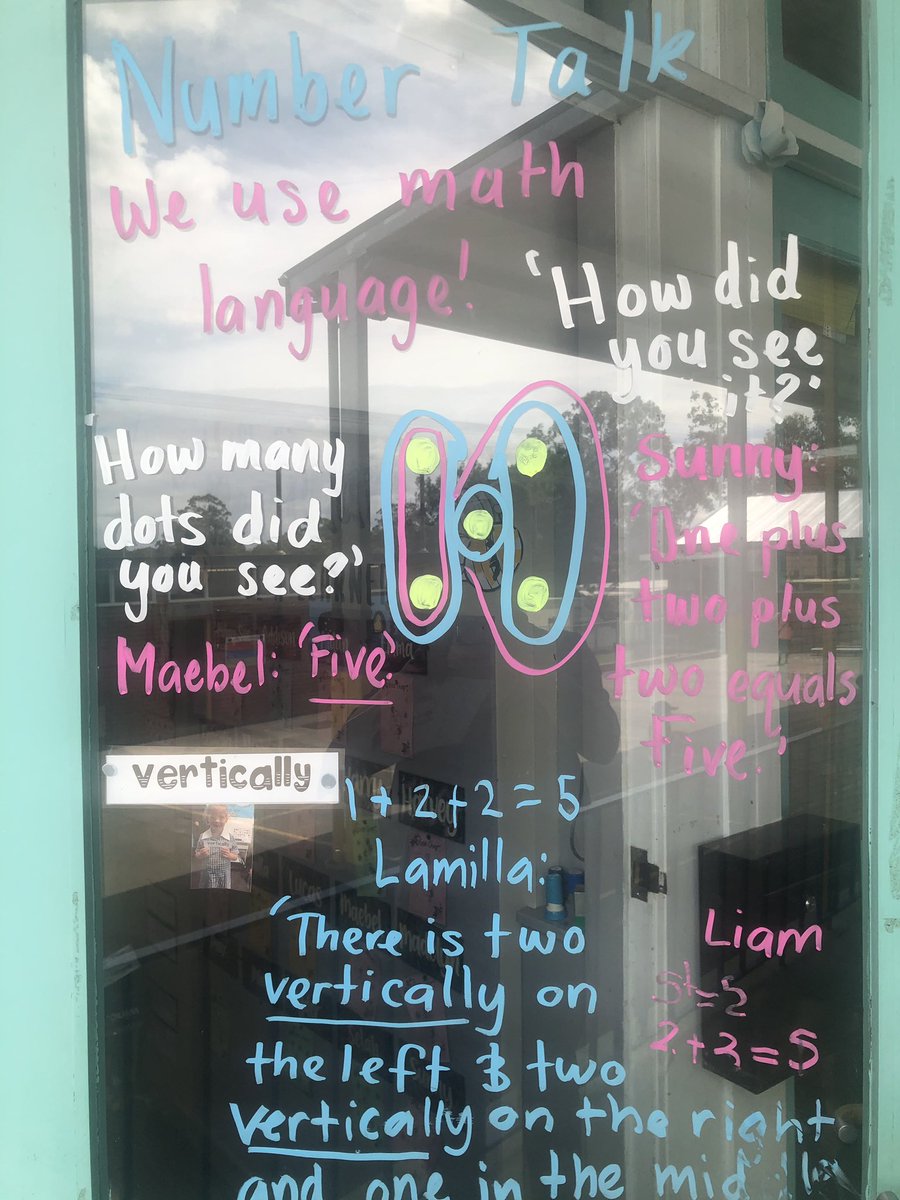 Number Talk
We use math
language!
'How did
you see
it?'
How many
dots did
you see?'
Maebel: 'Five.'
Sunny:
'One plus
two plus
two equals
Five.'
vertically
1+2+2=5
Lamilla:
'There is two
vertically on
the left & two
vertically on the right
and one in the middle
Liam
2+3=5
Harvey
Lucas
maebel